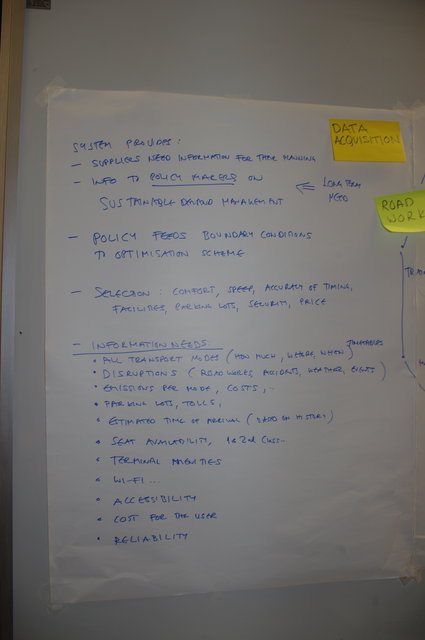 DATA
ACQUISITION
SYSTEM PROVIDES:
- SUPPLIERS NEED INFORMATION FOR THEIR PLANNING
- INFO TO POLICY MAKERS ON
SUSTAINABLE DEMAND MANAGEMENT
⇐ LONG TERM
NEED
- POLICY FEEDS BOUNDARY CONDITIONS
TO OPTIMISATION SCHEME
- SELECTION: COMFORT, SPEED, ACCURACY OF TIMING,
FACILITIES, PARKING LOTS, SECURITY, PRICE
- INFORMATION NEEDS:
• ALL TRANSPORT MODES (HOW MUCH, WHERE, WHEN) TIMETABLES
• DISRUPTIONS (ROAD WORKS, ACCIDENTS, WEATHER, EVENTS)
• EMISSIONS PER MODE, COSTS, ..
• PARKING LOTS, TOLLS,
• ESTIMATED TIME OF ARRIVAL (BASED ON HISTORY)
• SEAT AVAILABILITY, 1st 2nd CLASS...
• TERMINAL AMENITIES
• WI-FI ...
• ACCESSIBILITY
• COST FOR THE USER
• RELIABILITY
ROAD
WORK